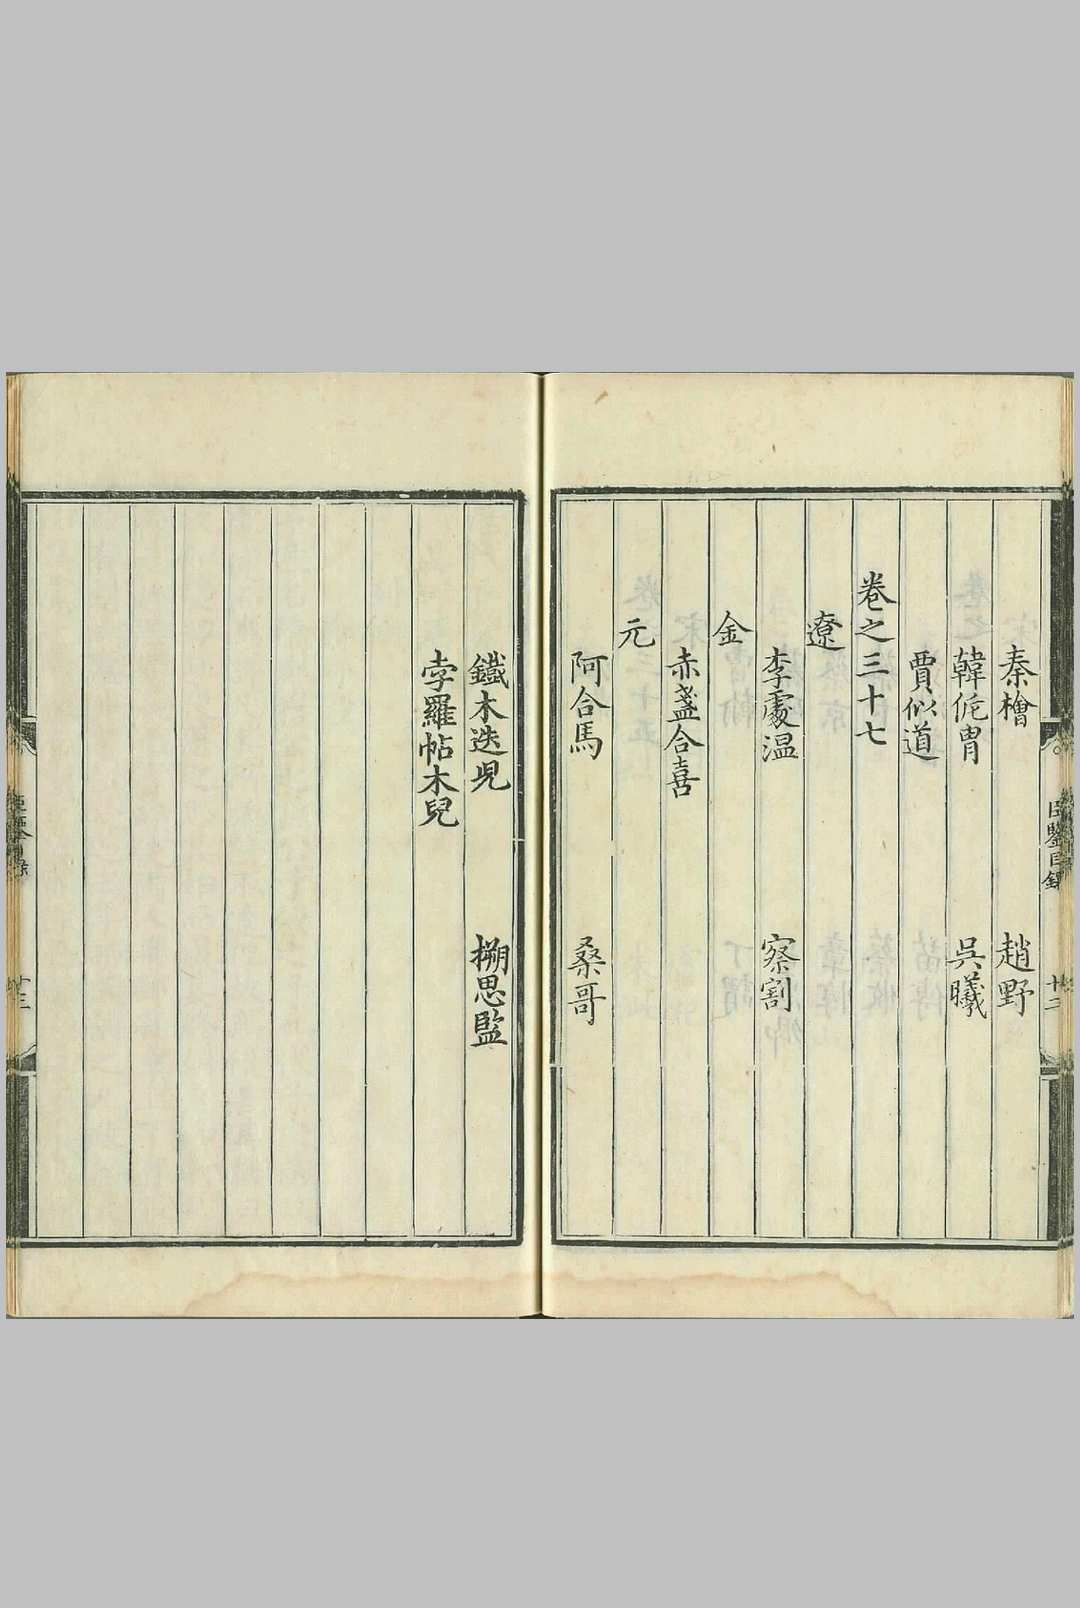 臣鑒目錄
十二
秦檜 趙野
韓侂胄 吳曦
賈似道
卷之三十七
遼
李處温 察割
金
赤盞合喜
元
阿合馬 桑哥
鐵木迭児 搠思監
孛羅帖木兒